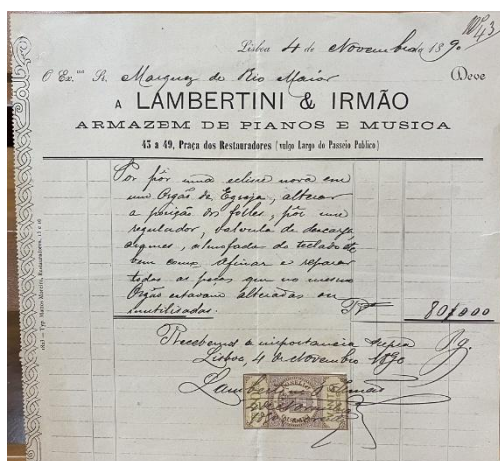 Nº 43
Lisboa 4 de Novembro de 1890
O Ex.mo Sr. Marquez de Rio Maior Deve
A LAMBERTINI & IRMÃO
ARMAZEM DE PIANOS E MUSICA
43 a 49, Praça dos Restauradores (vulgo Largo do Passeio Publico)
Por pôr uma eclisse nova em
um Orgão de Egreja, alterar
a posição dos folles, pôr um
regulador, valvula de descarga,
almofada do teclado
bem como afinar e reparar
todas as peças que no mesmo
Orgão estavam alteradas ou
inutilisadas. 80$000
Recebemos a importancia supra
Lisboa, 4 de Novembro 1890
Lambertini & Irmão